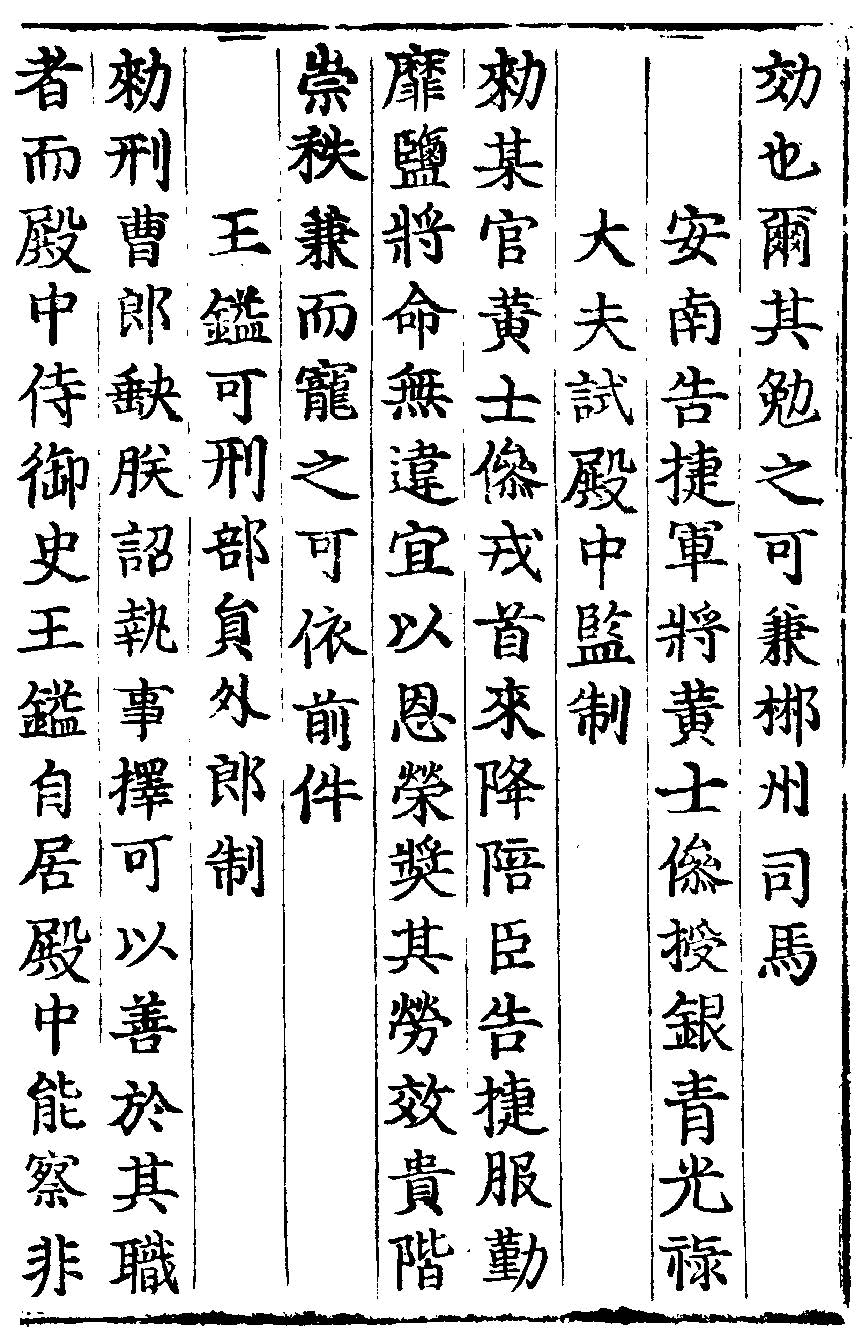 効也爾其勉之可兼梆州司馬
安南告捷軍將黄士傪授銀青光祿
大夫試殿中監制
勑某官黄士傪戎首來降陪臣告捷服勤
靡鹽將命無違宜以恩榮奬其勞效貴階
崇秩兼而寵之可依前件
王鑑可刑部貟外郎制
勑刑曹郎缺朕詔執事擇可以善於其職
者而殿中侍御史王鑑自居殿中能察非